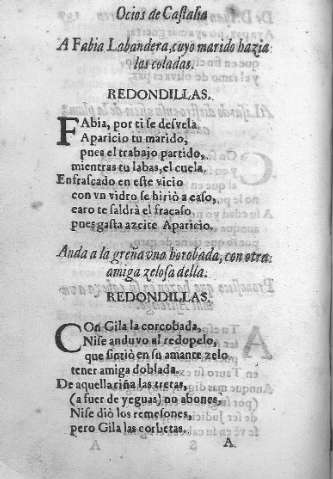 Ocios de Castalia
A Fabia Labandera, cuyo marido hazia
las coladas.
REDONDILLAS.
FAbia, por ti se desvela
Aparicio tu marido,
pues el trabajo partido,
mientras tu labas, el cuela.
Enfrascado en este vicio
con vn vidro se hiriò a caso,
caro te saldrà el fracaso
pues gasta azeite Aparicio.
Anda a la greña vna borobada, con otra
amiga zelosa della.
REDONDILLAS.
COn Gila la corcobada,
Nise anduvo al redopelo,
que sintiò en su amante zelo
tener amiga doblada.
De aquella riña las tretas,
(a fuer de yeguas) no abones,
Nise diò los remesones,
pero Gila las corbetas.
A.